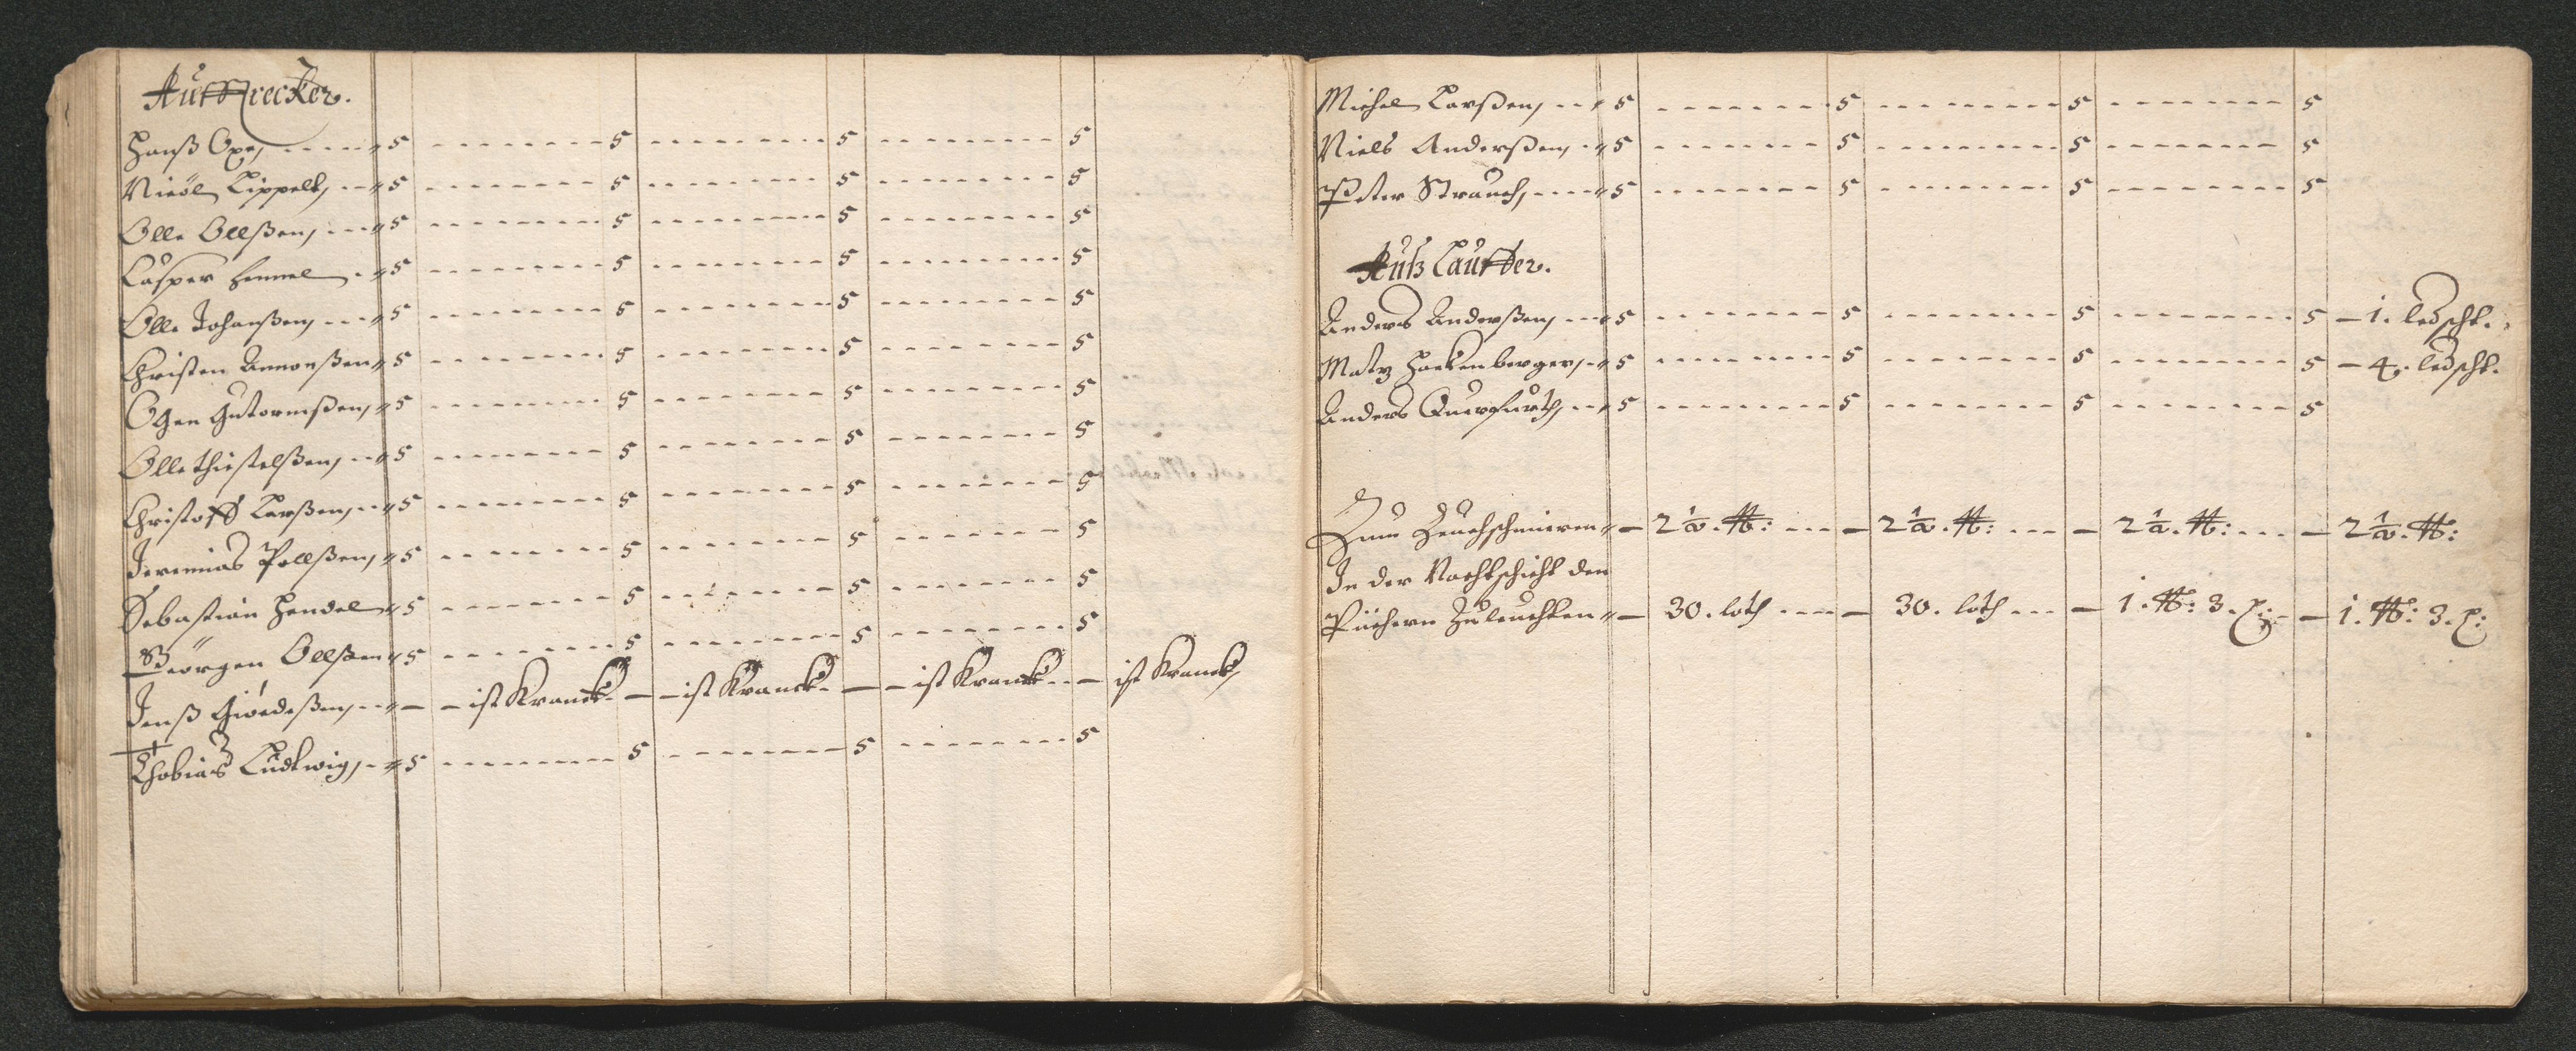 Auffstrecker.
Hanß Oxe, 5 5 5 5
Nicol Lippelt, 5 5 5 5
Olle Ollßen, 5 5 5 5
Casper Hemmel 5 5 5 5
Olle Johanßen, 5 5 5 5
Christen Amonßen 5 5 5 5
Ogen Gutormßen, 5 5 5 5
Olle Thistelßen, 5 5 5
Christoff Larßen, 5 5 5 5
Jeremias Pollßen, 5 5 5 5
Sebastian Hendel 5 5 5 5
Georgen Ollßen 5 5 5 5
Jenß Giordeßen, – – ist Kranck – – ist Kranck – – ist Kranck – ist Kranck,
Thobias Ludtwig, 5 5 5 5
Michel Larßen, 5 5 5 5
Niels Anderßen, 5 5 5 5
Peter Strauch, 5 5 5 5
Außlauffer.
Anders Anderßen, 5 5 5 5 – 1. ledscht.
Matz Hackenberger, 5 5 5 5 – 4. ledscht.
Anders Querfurth, 5 5 5 5
Zum Zeuchschmieren – 2 1/2. ℔: – 2 1/2. ℔: – 2 1/2. ℔: – 2 1/2. ℔:
In der Nachtschicht den
Püchern Zuleuchten – 30. loth – 30. loth – 1. ℔: 3. l: – 1. ℔: 3. l: